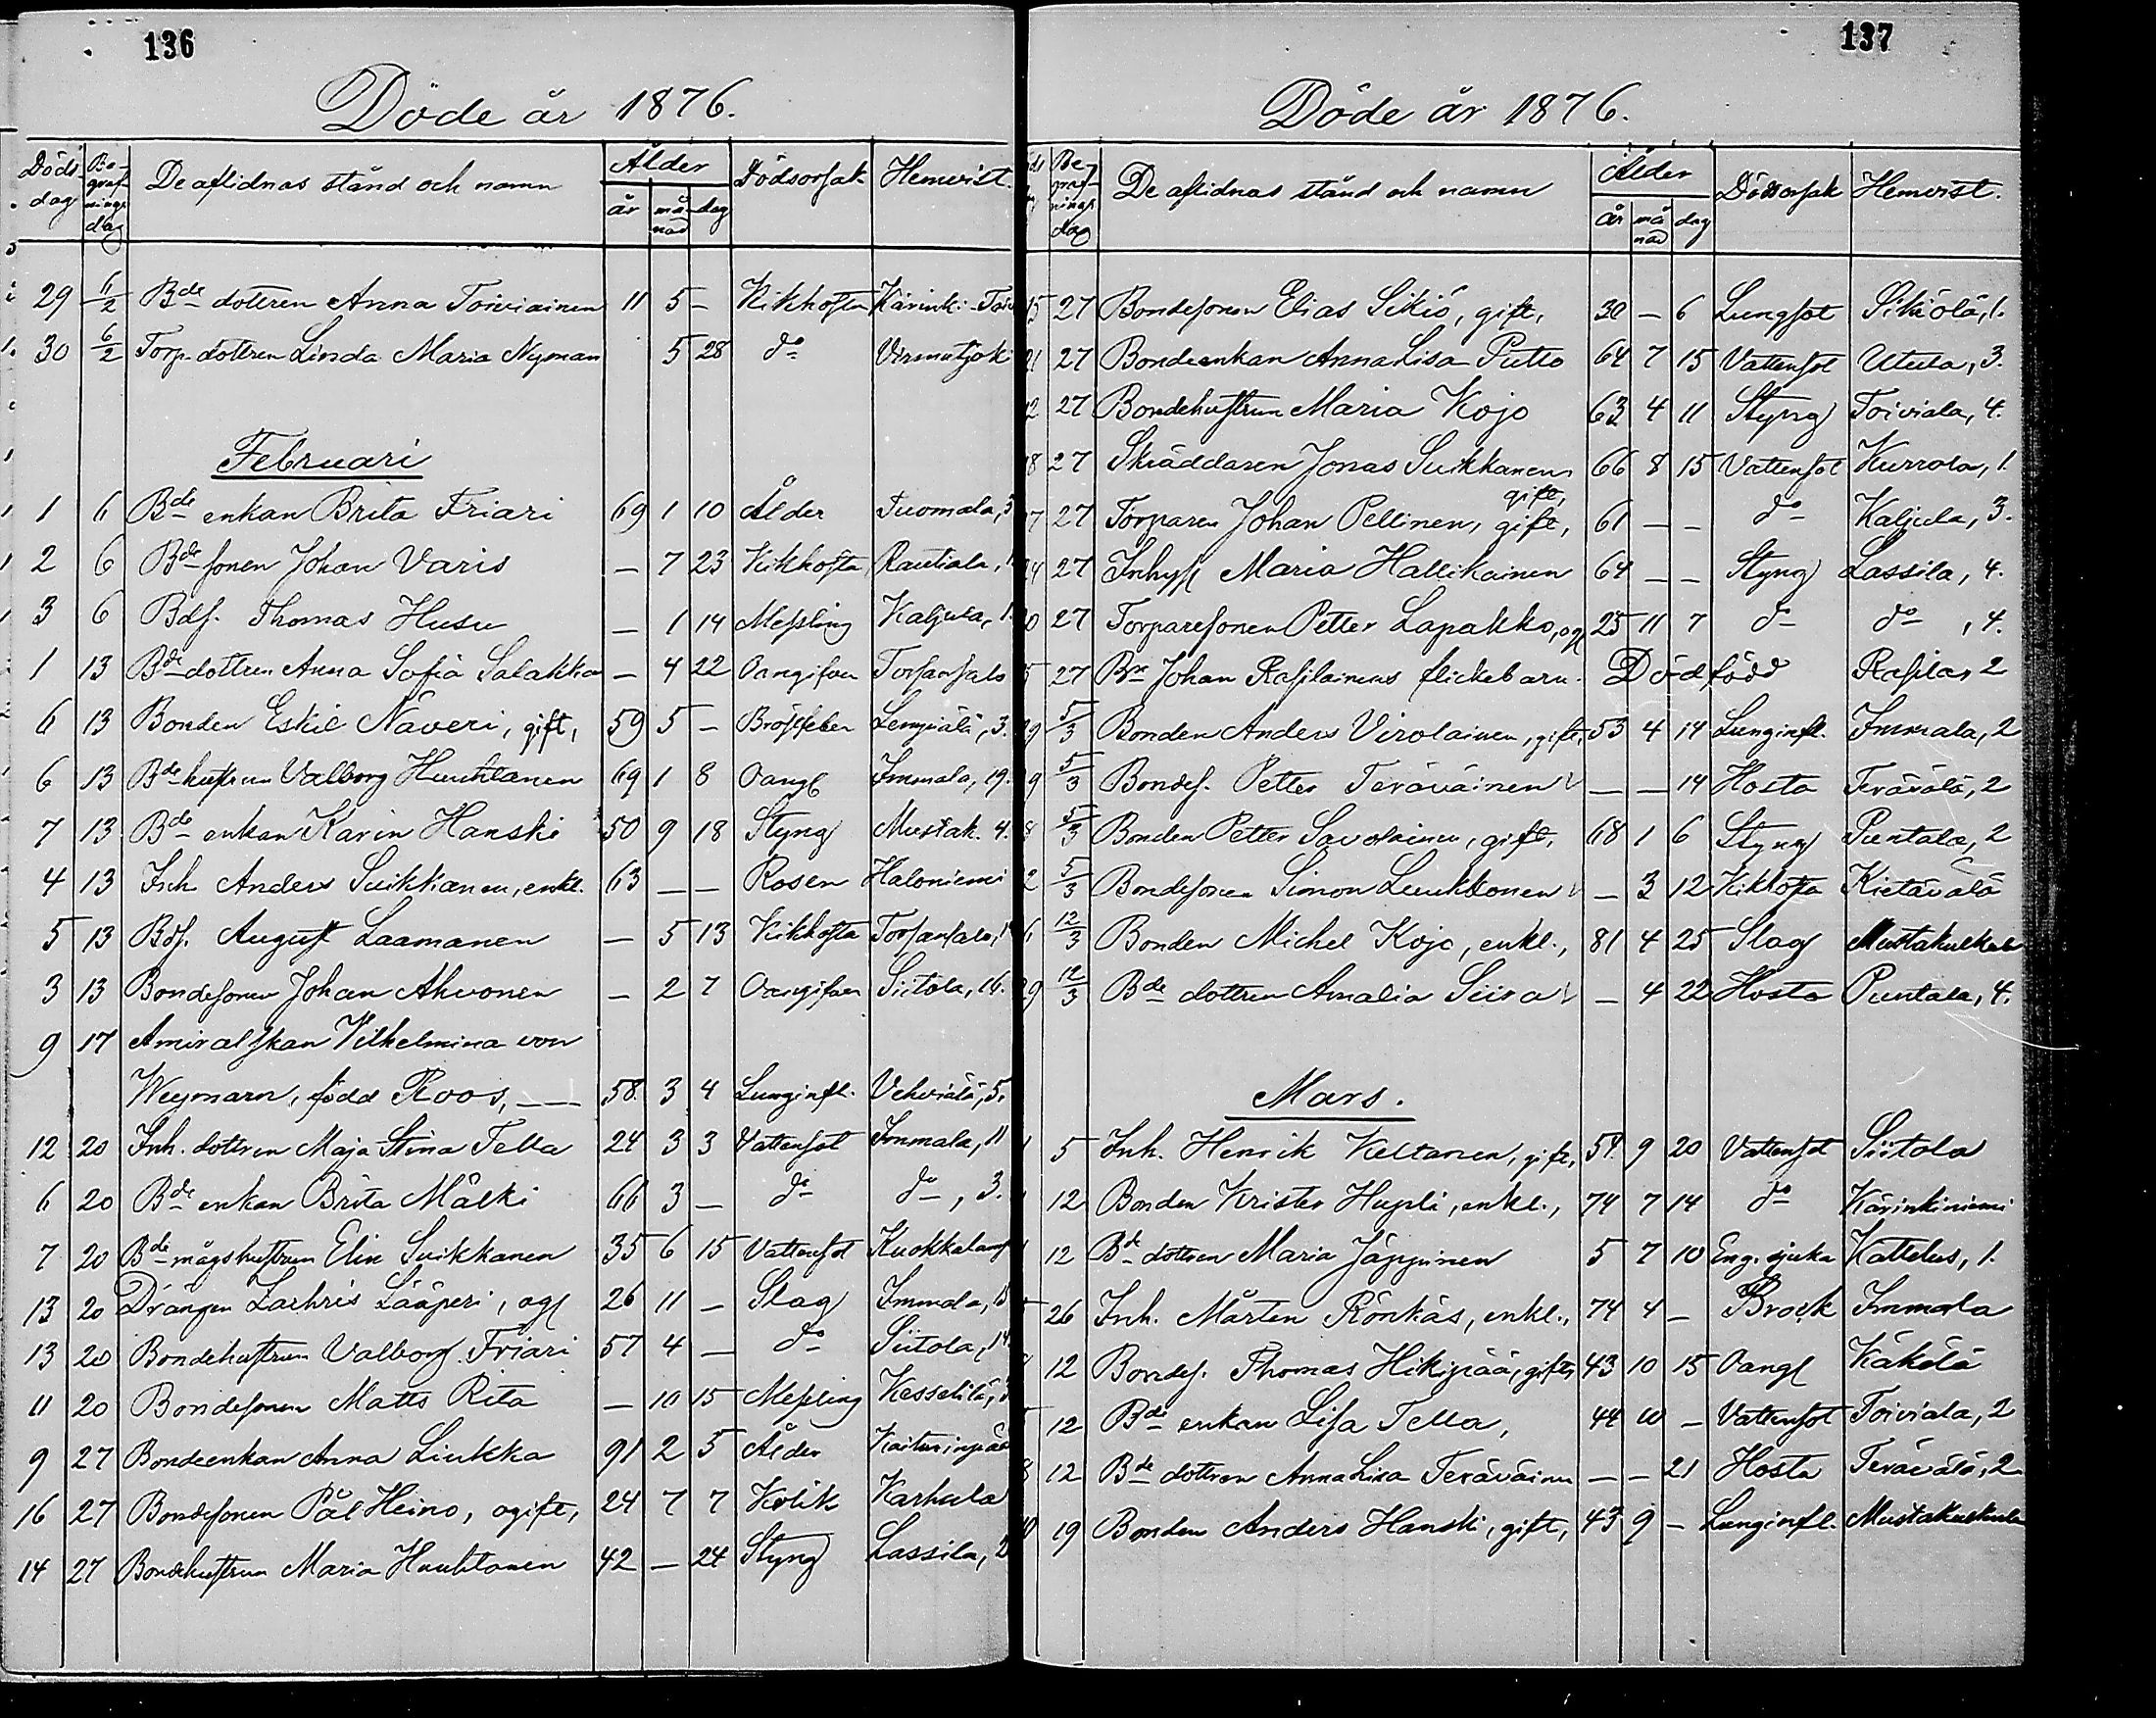 136
Döde år 1876.
Döds dag Begrafnings dag De aflidnas stånd och namn Ålder år månad dag Dödsorsak Hemvist.
29 6/2 Bde dottren Anna Toiviainen 11 5 — Kikhosta Kärinki-
30 6/2 Torp. dottren Linda Maria Nyman 5 28 do Virmutjok
Februari
1 6 Bde enkan Brita Friari 69 1 10 Ålder Tuomala, 3
2 6 Bde sonen Johan Varis — 7 23 Kikhosta Rautiala,
3 6 Bdes. Thomas Husu — 1 14 Messling Kaljula, 1.
1 13 Bde dottren Anna Sofia Salakka — 4 22 Oangifven Torsansalo
6 13 Bonden Eskil Näveri, gift, 59 5 — Bröstfeber 3.
6 13 Bde hustrun Valborg Huuhtanen 69 1 8 Oang. Immala, 19.
7 13 Bde enkan Karin Hanski 50 9 18 Styng Mustak. 4.
4 13 Inh. Anders Suikkanen, enkl. 63 — — Rosen Haloniemi
5 13 Bds. August Laamanen — 5 13 Kikhosta Torsansalo,
3 13 Bondesonen Johan Ahvonen — 2 7 Oangifven Siitola, 16.
9 17 Amiralskan Vilhelmina von
Weymarn, född Roos, — 58. 3 4 Lunginfl. Vehviälä, 5.
12 20 Inh. dottren Maja Stina Tella 24 3 3 Vattensot Immala, 11
6 20 Bde enkan Brita Mälki 66 3 — do do, 3.
7 20 Bde mågshustrun Elin Suikkanen 35 6 15 Vattensot
13 20 Drängen Zachris Lääperi, og. 26 11 — Slag Immala,
13 20 Bondehustrun Valborg Friari 57 4 — do Siitola, 14.
11 20 Bondesonen Matts Rita — 10 15 Messling Kesselilä,
9 27 Bondeenkan Anna Liukka 91 2 5 Ålder
16 27 Bondesonen Pål Heino, ogift, 24 7 7 Kolik Karhula
14 27 Bondehustrun Maria Huuhtanen 42 — 24 Styng Lassila, 2
137
Döde år 1876.
Begrafnings dag De aflidnas stånd och namn Ålder år månad dag Dödsorsak Hemvist.
15 27 Bondesonen Elias Sikiö, gift, 30 — 6 Lungsot Sikiölä, 1.
21 27 Bondeenkan Anna Lisa Putto 64 7 15 Vattensot Utula, 3.
22 27 Bondehustrun Maria Kojo 63 4 11 Styng Toiviala, 4.
18 27 Skräddaren Jonas Suikkanen, gift, 66 8 15 Vattensot Kurrola, 1.
17 27 Torparen Johan Pellinen, gift, 61 — — do Kaljula, 3.
24 27 Inhys. Maria Hallikainen 64 — — Styng Lassila, 4.
20 27 Torparesonen Petter Lapakko, og. 25 11 7 do do, 4.
5 27 Bn Johan Rasilainens flickebarn. Dödfödd Rasila, 2
29 5/3 Bonden Anders Virolainen, gift, 53 4 14 Lunginfl. Immala, 2
19 5/3 Bondes. Petter Teräväinen — — 14 Hosta Terävälä, 2
8 5/3 Bonden Petter Savolainen, gift, 68 1 6 Styng Puntala, 2
2 5/3 Bondesonen Simon Luukkonen — 3 12 Kikhosta Kietävälä
6 12/3 Bonden Michel Kojo, enkl., 81 4 25 Slag Mustakulkula
29 12/3 Bde dottren Amalia Siira — 4 22 Hosta Puntala, 4.
Mars.
5 Inh. Henrik Keltanen, gift, 54 9 20 Vattensot Siitola
12 Bonden Krister Hupli, enkl., 74 7 14 do Kärinkiniemi
12 Bde dottren Maria Jäppinen 5 7 10 Eng. sjuka Kattelus, 1.
26 Inh. Mårten Rönkäs, enkl., 74 4 — Brock Immala
12 Bondes. Thomas Hikipää, gift, 43 10 15 Oang. Käkölä
12 Bde enkan Lisa Tella, 44 10 — Vattensot Toiviala, 2
12 Bde dottren Anna Lisa Teräväinen — — 21 Hosta Terävälä, 2
19 Bonden Anders Hanski, gift, 43 9 — Lunginfl. Mustakulkula